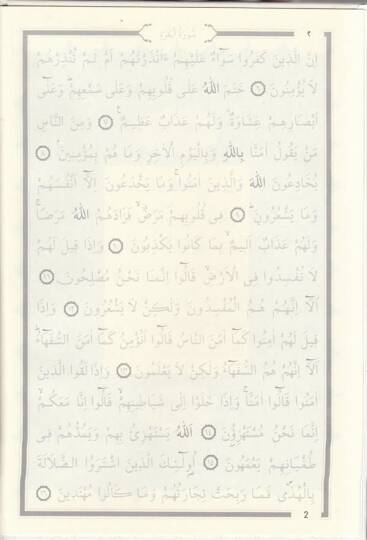 سورة البقرة ٢
إن الذين كفروا سواء عليهم ءأنذرتهم أم لم تنذرهم
لا يؤمنون ٦ ختم الله على قلوبهم وعلى سمعهم وعلى
أبصارهم غشاوة ولهم عذاب عظيم ٧ ومن الناس
من يقول آمنا بالله وباليوم الآخر وما هم بمؤمنين ٨
يخادعون الله والذين آمنوا وما يخدعون إلا أنفسهم
وما يشعرون ٩ في قلوبهم مرض فزادهم الله مرضا
ولهم عذاب أليم بما كانوا يكذبون ١٠ وإذا قيل لهم
لا تفسدوا في الأرض قالوا إنما نحن مصلحون ١١
ألا إنهم هم المفسدون ولكن لا يشعرون ١٢ وإذا
قيل لهم آمنوا كما آمن الناس قالوا أنؤمن كما آمن السفهاء
ألا إنهم هم السفهاء ولكن لا يعلمون ١٣ وإذا لقوا الذين
آمنوا قالوا آمنا وإذا خلوا إلى شياطينهم قالوا إنا معكم
إنما نحن مستهزؤن ١٤ الله يستهزئ بهم ويمدهم في
طغيانهم يعمهون ١٥ أولئك الذين اشتروا الضلالة
بالهدى فما ربحت تجارتهم وما كانوا مهتدين ١٦
2